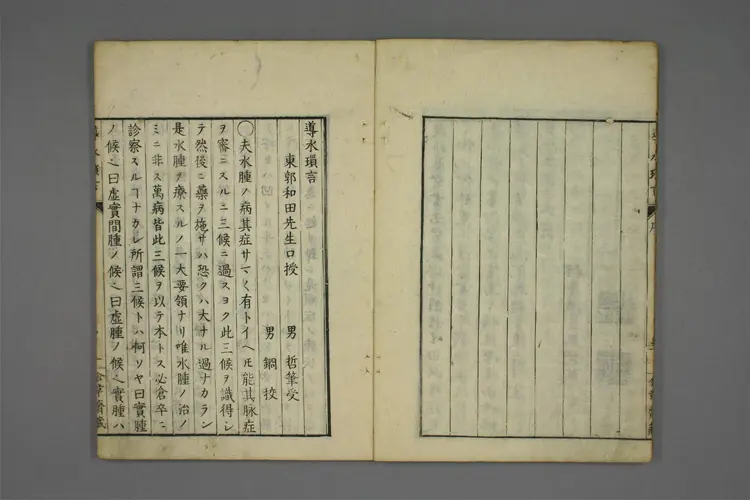 導水瑣言
東郭和田先生口授
男 哲筆受
男 鋼挍
〇夫水腫ノ病其症サマ〱有トイヘ𪜈能其脉症
ヲ審ニスルニ三候ニ過スヨク此三候ヲ識得シ
テ然後ニ藥ヲ施サハ恐クハ大ナル過ナカラン
是水腫ヲ療スルノ一大要領ナリ唯水腫ノ治ノ
ミニ非ス萬病皆此三候ヲ以テ本トス必倉卒ニ
診察スルヿナカレ所謂三候トハ柯ソヤ曰實腫
ノ候也曰虚實間腫ノ候也曰虚腫ノ候也實腫ハ